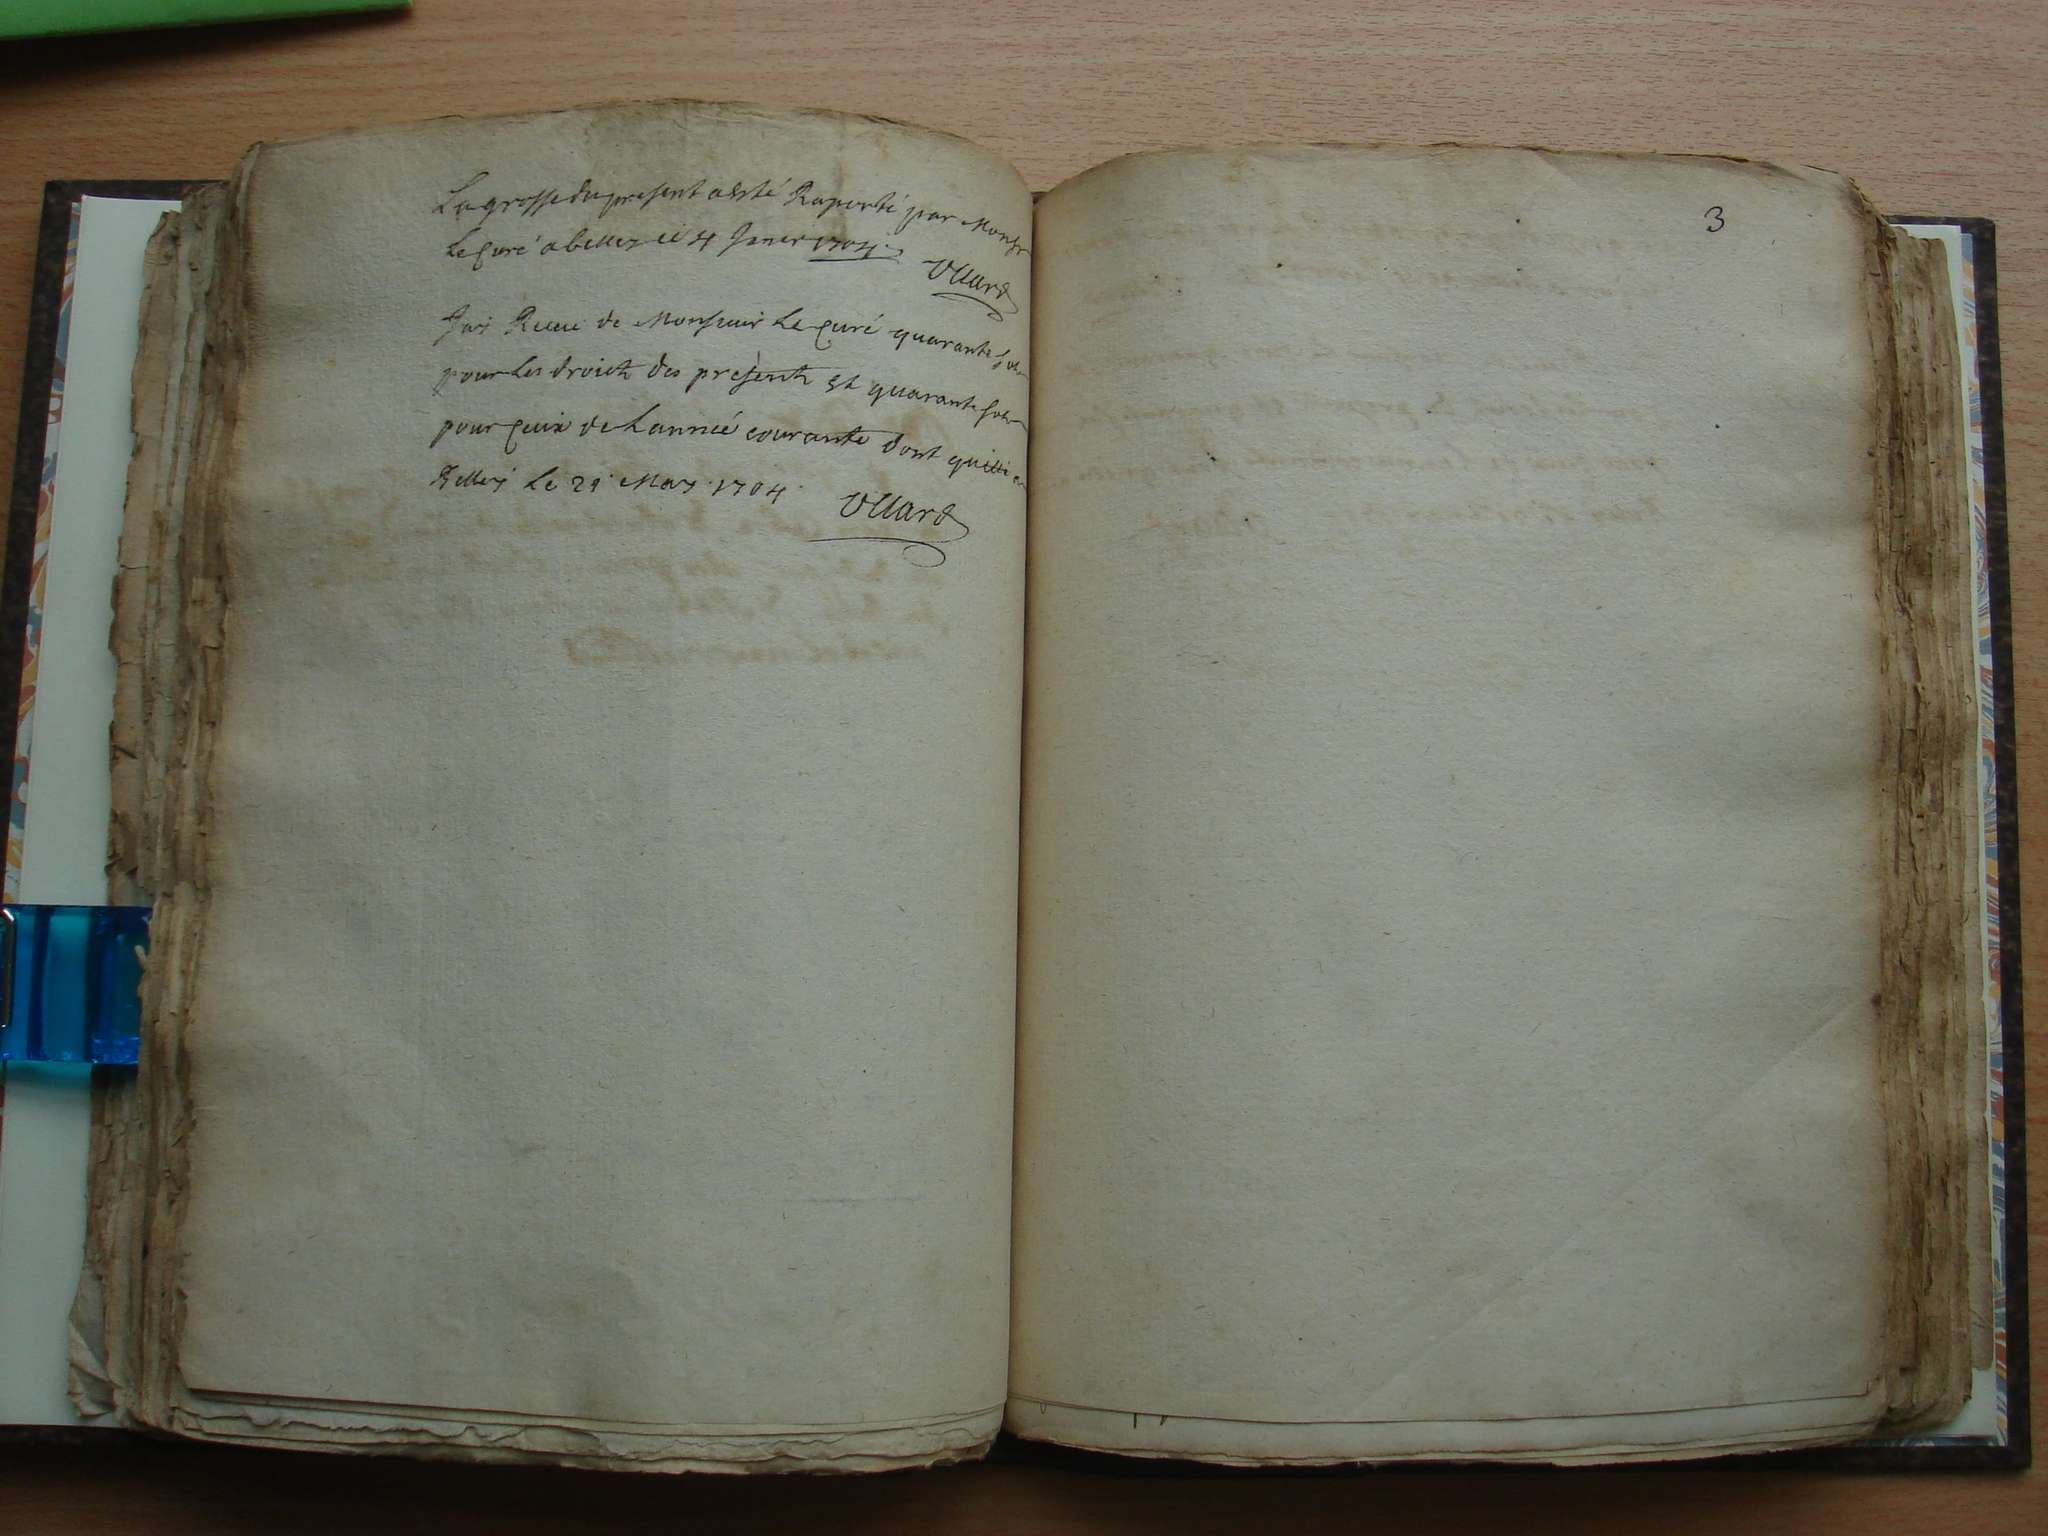 La grosse du present a esté Raporté par Monsr
Le Curé a belley ce 4 Janer 1704
Ullard
Jay Receu de Monsieur Le Curé quarante sols
pour Les droict des present et quarante sols
pour ceux de Lannee courante dont quitte a
Belley Le 29 May 1704
Ullard
3